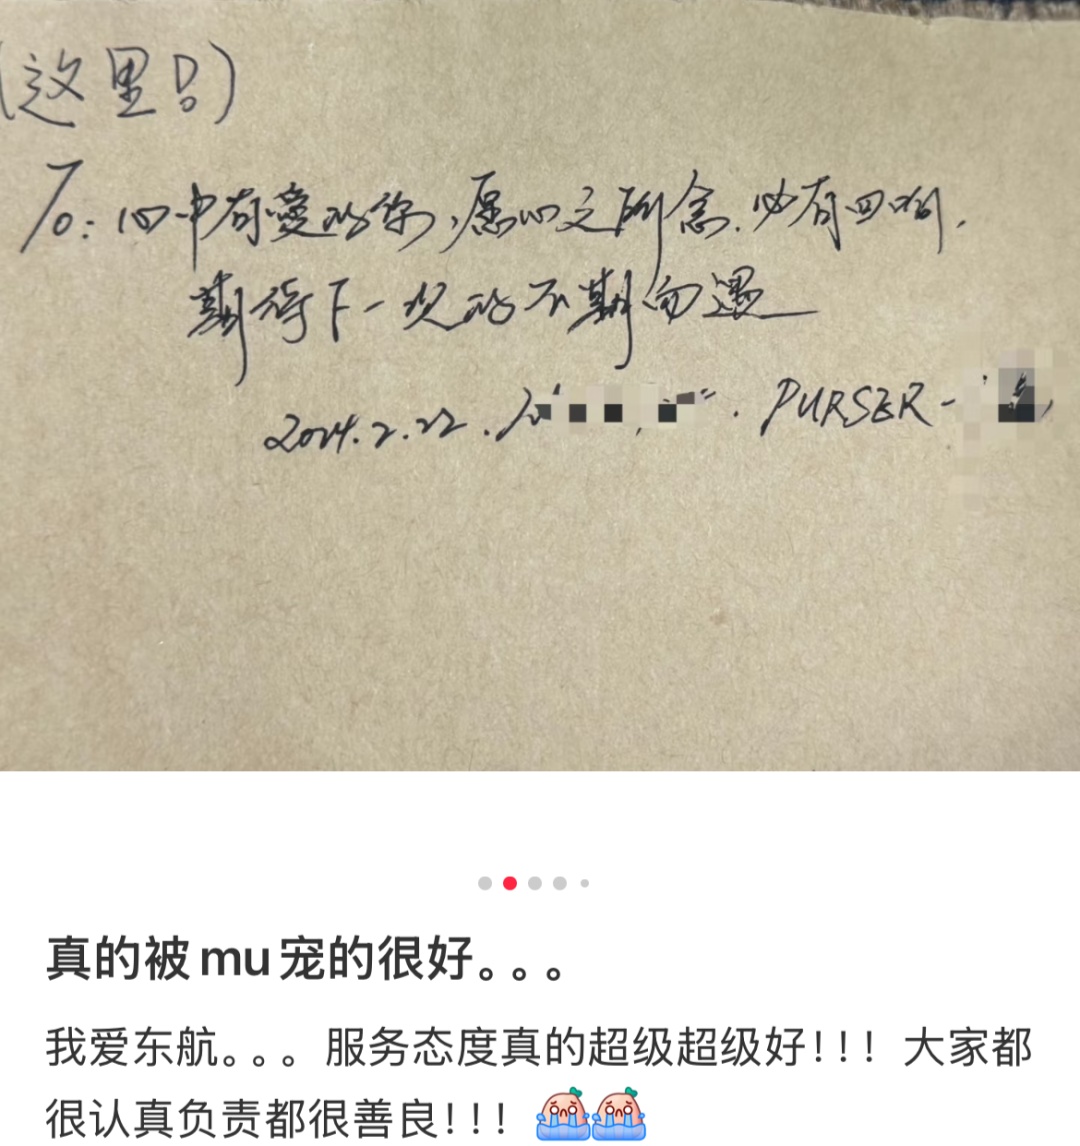 (这里!)
To: 心中有愛的你,愿心之所念.必有回响.
期待下一次的不期而遇
2024.2.22.
PURSER-
真的被mu宠的很好。。。
我爱东航。。。服务态度真的超级超级好!!!大家都
很认真负责都很善良!!!